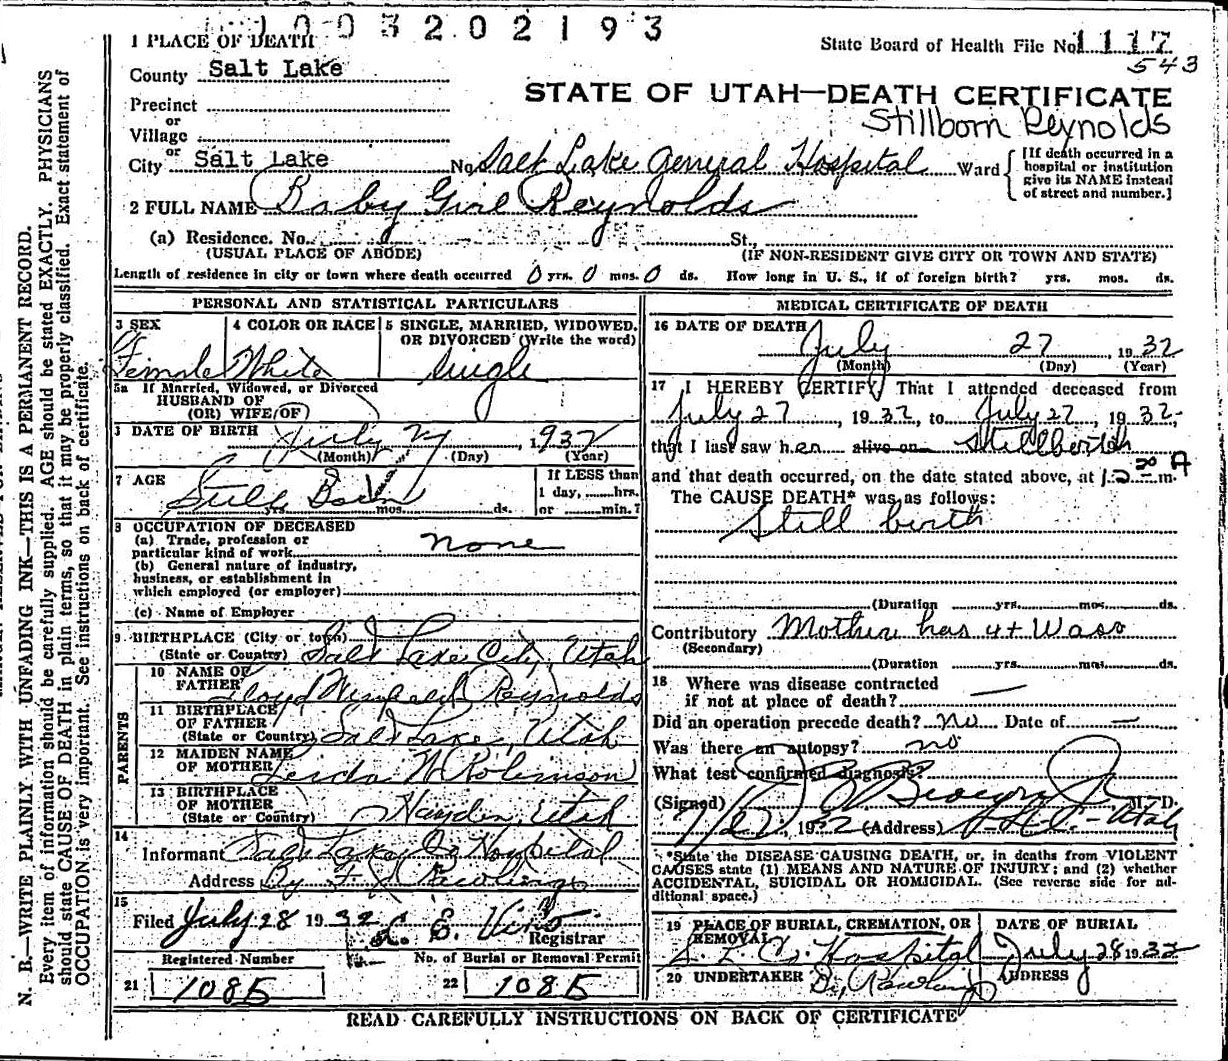 1003202193
1 PLACE OF DEATH
State Board of Health File No. 1117
543
County Salt Lake
STATE OF UTAH—DEATH CERTIFICATE
Precinct
Stillborn Reynolds
or
Village
or
City Salt Lake No. Salt Lake General Hospital Ward
[If death occurred in a
hospital or institution
give its NAME instead
of street and number.]
2 FULL NAME Baby Girl Reynolds
(a) Residence. No. St.,
(USUAL PLACE OF ABODE) (IF NON-RESIDENT GIVE CITY OR TOWN AND STATE)
Length of residence in city or town where death occurred 0 yrs. 0 mos. 0 ds. How long in U. S., if of foreign birth? yrs. mos. ds.
PERSONAL AND STATISTICAL PARTICULARS
3 SEX 4 COLOR OR RACE 5 SINGLE, MARRIED, WIDOWED,
OR DIVORCED (Write the word)
Female White Single
5a If Married, Widowed, or Divorced
HUSBAND OF
(OR) WIFE OF
DATE OF BIRTH July 27, 1932
(Month) (Day) (Year)
7 AGE Still Born
If LESS than
1 day, hrs.
or min.?
yrs. mos. ds.
8 OCCUPATION OF DECEASED
(a) Trade, profession or
particular kind of work none
(b) General nature of industry,
business, or establishment in
which employed (or employer)
(c) Name of Employer
9 BIRTHPLACE (City or town)
(State or Country) Salt Lake City, Utah
PARENTS
10 NAME OF
FATHER Lloyd Reynolds
11 BIRTHPLACE
OF FATHER
(State or Country) Salt Lake, Utah
12 MAIDEN NAME
OF MOTHER Robinson
13 BIRTHPLACE
OF MOTHER
(State or Country) Hayden, Utah
14
Informant Salt Lake Co Hospital
Address By
15
Filed July 28 1932
Registrar
Registered Number No. of Burial or Removal Permit
21 1085 22 1085
MEDICAL CERTIFICATE OF DEATH
16 DATE OF DEATH
July 27, 1932
(Month) (Day) (Year)
17 I HEREBY CERTIFY That I attended deceased from
July 27 1932, to July 27, 1932,
that I last saw her alive on stillbirth
and that death occurred, on the date stated above, at m.
The CAUSE DEATH* was as follows:
Still birth
(Duration yrs. mos. ds.
Contributory Mother has 4+ Wass
(Secondary)
(Duration yrs. mos. ds.
18 Where was disease contracted
if not at place of death?
Did an operation precede death? no Date of —
Was there an autopsy? no
What test confirmed diagnosis?
(Signed) M. D.
7/27, 1932 (Address) S.L.C. Utah
*State the DISEASE CAUSING DEATH, or, in deaths from VIOLENT
CAUSES state (1) MEANS AND NATURE OF INJURY; and (2) whether
ACCIDENTAL, SUICIDAL OR HOMICIDAL. (See reverse side for ad-
ditional space.)
19 PLACE OF BURIAL, CREMATION, OR
REMOVAL
DATE OF BURIAL
S. L. Co. Hospital July 28 1932
20 UNDERTAKER ADDRESS
READ CAREFULLY INSTRUCTIONS ON BACK OF CERTIFICATE
N. B.—WRITE PLAINLY WITH UNFADING INK—THIS IS A PERMANENT RECORD.
Every item of information should be carefully supplied. AGE should be stated EXACTLY. PHYSICIANS
should state CAUSE OF DEATH in plain terms, so that it may be properly classified. Exact statement of
OCCUPATION is very important. See instructions on back of certificate.